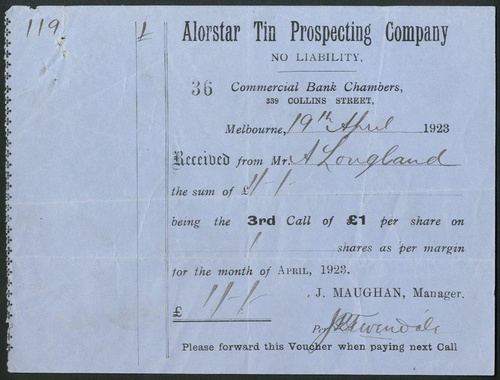 119
1
Alorstar Tin Prospecting Company
NO LIABILITY.
36 Commercial Bank Chambers,
339 COLLINS STREET,
Melbourne, 19th April 1923
Received from Mr. A Longland
the sum of £ 1/-/-
being the 3rd Call of £1 per share on
1 shares as per margin
for the month of APRIL, 1923.
£ 1/-/-
J. MAUGHAN, Manager.
Per
Please forward this Voucher when paying next Call